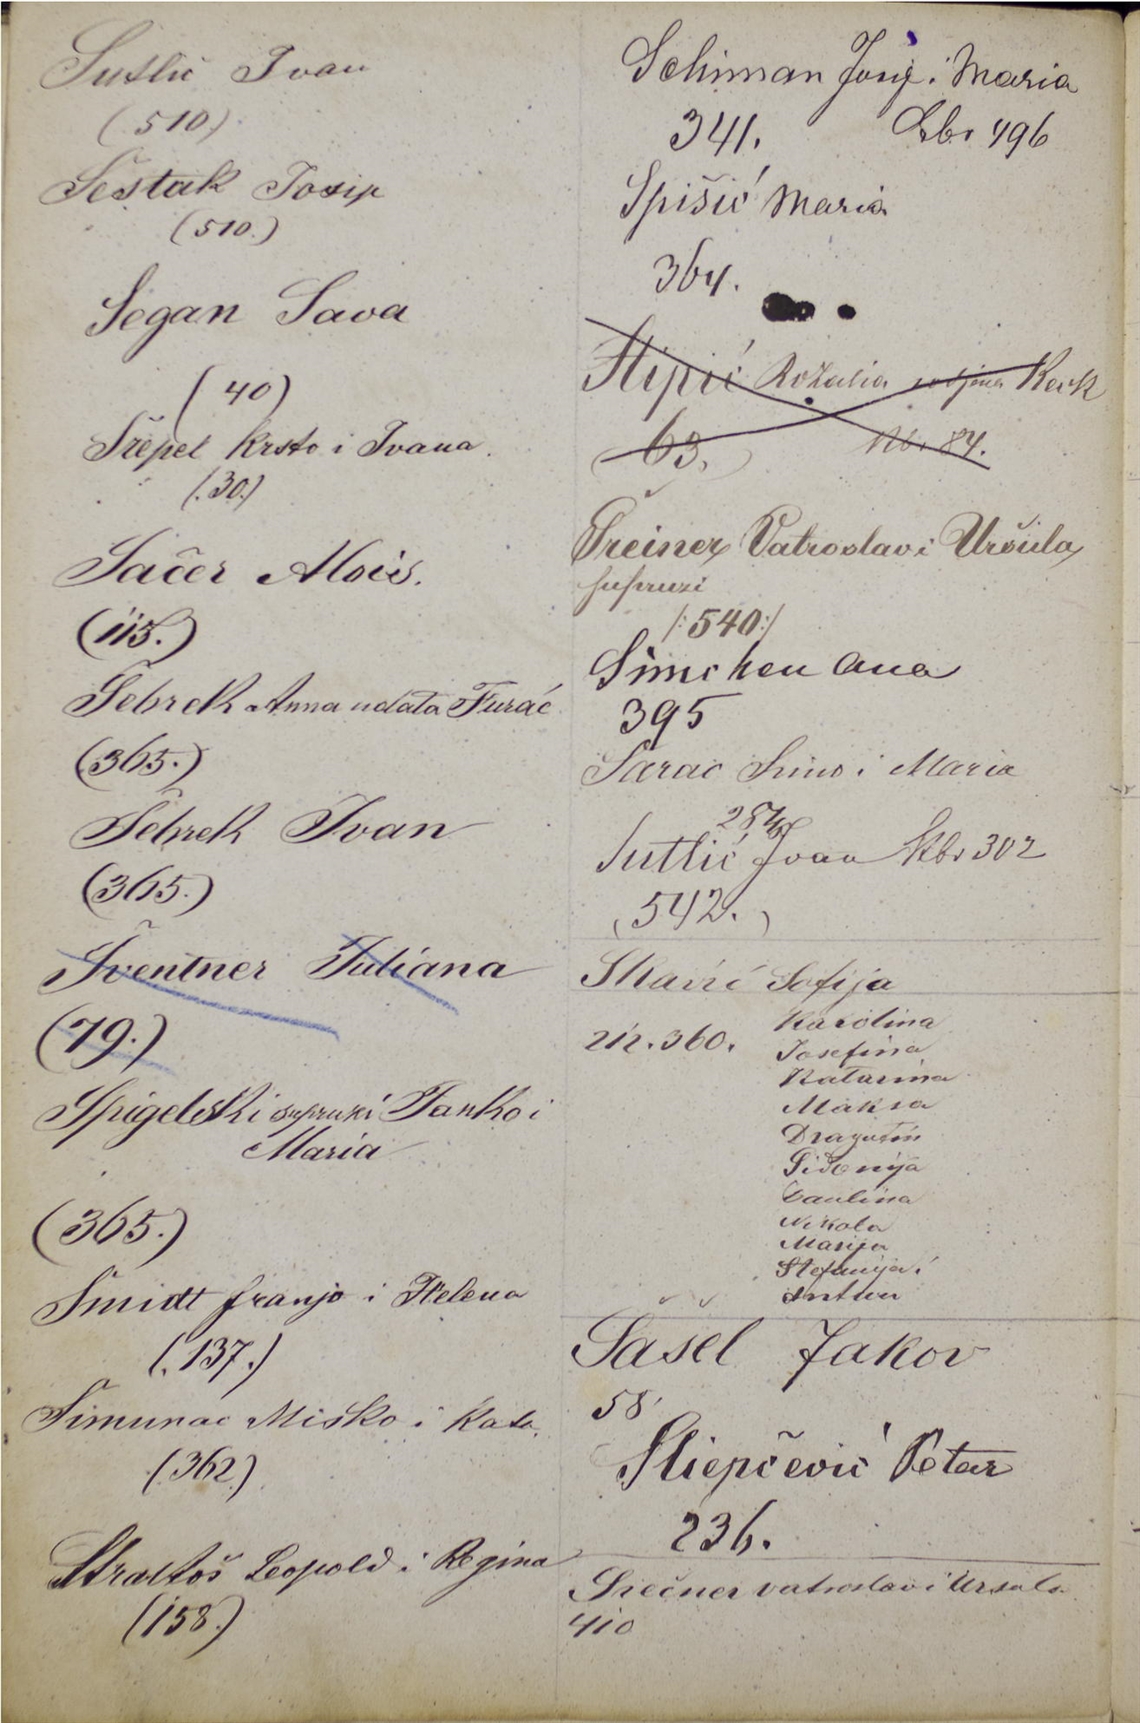 Sutlić Ivan
(510)
Šestak Josip
(510.)
Segan Sava
(40)
Srépel Krsto i Ivana.
(.30.)
Sačer Alois.
(115.)
Šebrek Anna udata Furać
(365.)
Šebrek Ivan
(365.)
Šventner Juliana
(79.)
Spigelski supruzi Janko i
Maria
(365.)
Šmidt Franjo i Helena
(.137.)
Šimunac Miško i Kata.
(362)
Straltoš Leopold i Regina
(158.)
Schiman Josip i Maria
341. Kbr 496
Spišić Maria
364.
Stipić Rožalia rodjena Kerk
(63.) Kbr 84.
Šreiner Vatroslav i Uršula
supruzi
/:540:/
Simchen Ana
395
Šarac Simo i Maria
287
Sutlić Ivan Kbr 302
(542.)
Skavić Sofija
212.360. Karolina
Josefina
Katarina
Maksa
Dragutin
Sidonija
Paulina
Nikola
Marija
Stefanija i
Antun
Šašel Jakov
58.
Sliepčević Petar
236.
Srečner Vatroslav i Ursula
410